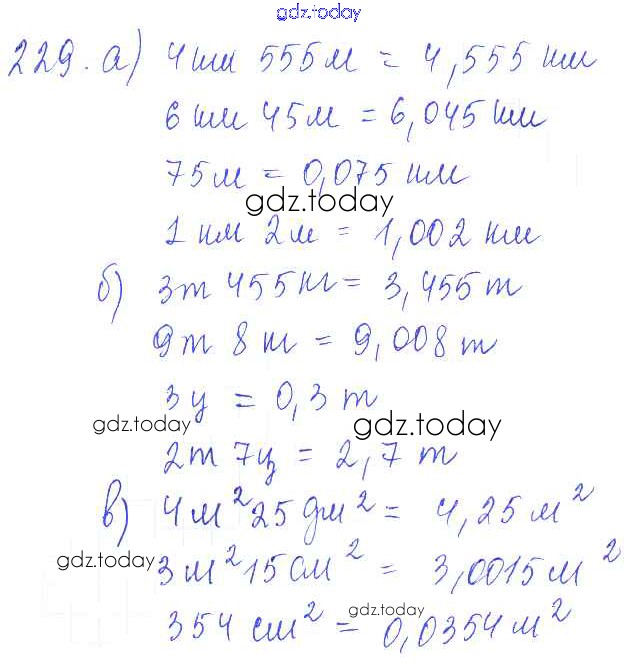 gdz.today
229. а) 4 км 555 м = 4,555 км
6 км 45 м = 6,045 км
75 м = 0,075 км
gdz.today
1 км 2 м = 1,002 км
б) 3 т 455 кг = 3,455 т
9 т 8 кг = 9,008 т
3 ц = 0,3 т
gdz.today gdz.today
2 т 7 ц = 2,7 т
в) 4 м² 25 дм² = 4,25 м²
gdz.today
3 м² 15 см² = 3,0015 м²
gdz.today
354 см² = 0,0354 м²